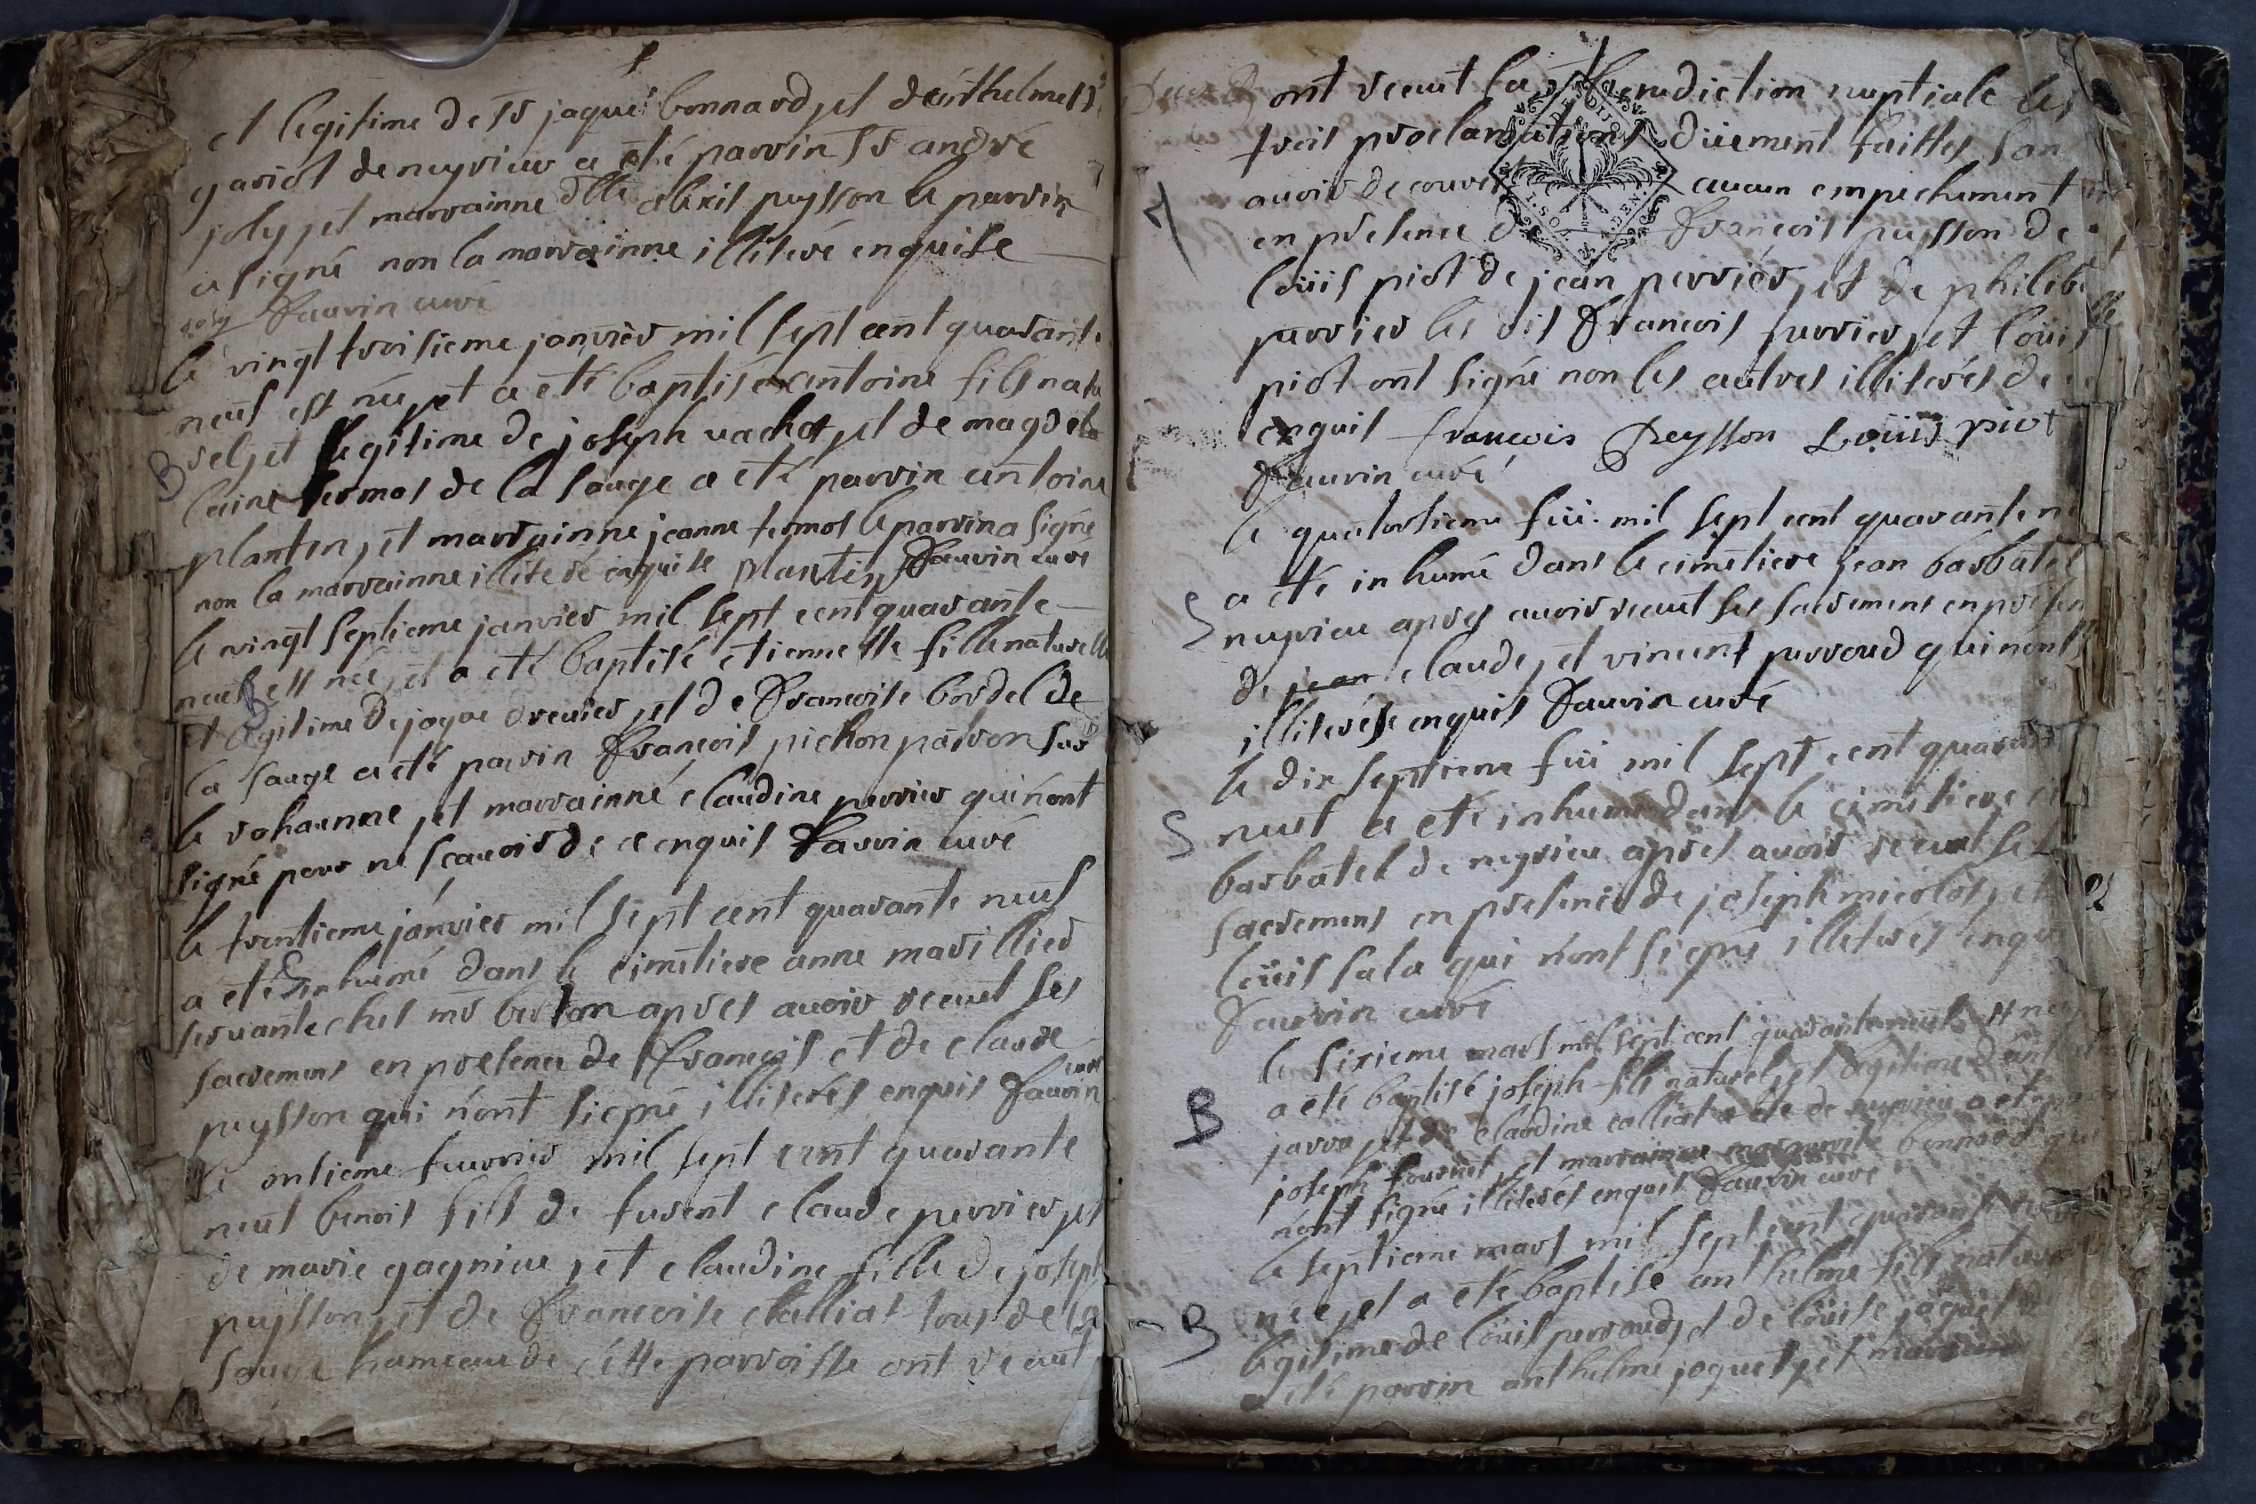 et legitime de sr jaque bonnard, et danthelmette
gariot de neyrieu a eté parrin sr andré
joly, et marrainne dlle alexis peysson le parrin
a signé non la marrainne illiteré enquise
joly Faurin curé
le vingt troisieme janvier mil sept cent quarante
neuf est né, et a eté baptisé antoine fils natu
rel, et legitime de joseph vachot, et de magdela
laine termos de la sauge a eté parrin antoine
plantin, et marrainne jeanne termos le parrin a signé
non la marrainne illiteré enquise plantin Faurin curé
le vingt septieme janvier mil sept cent quarante
neuf est née, et a eté baptisé etiennette fille naturelle
et legitime de jaque drevier, et de Francoise bordel de
la sauge a eté parrin François pichon patron sur
le rohanne, et marrainné claudine perrier qui nont
signé pour ne scavoir de ce enquis Faurin curé
le trentieme janvier mil sept cent quarante neuf
a eté inhumé dans le cimetiere anne marillier
servante ches mr berton apres avoir receut ses
sacremens en presence de François et de claude
peysson qui nont signé illiterés enquis Faurin curé
le ontieme fevrier mil sept cent quarante
neuf benois fils de furent claude perrier, et
de marie gagnieu, et claudine fille de joseph
peysson, et de Francoise challiat tous de la
sauge hameau de cette parroisse ont receut
B
B
S
ont receut la ste benediction nuptiale les
trois proclamations düement faittes san
avoir decouvert aucun empechement
en presence de François peysson de
loüis piot de jean perrier, et de philibe
perrier les dis Francois perrier, et loüis
piot ont signé non les autres illiterés de ce
enquis françois Peysson Loüis piot
Faurin curé
le quatorsieme fev: mil sept cent quarante ne
a eté inhumé dans le cimetiere jean barbatel
neyrieu apres avoir receut ses sacremens en presen
de jean claude, et vincent perroud qui nont
illiterés enquis Faurin curé
le dix septieme fev: mil sept cent quarante
neuf a eté inhumé dans le cimetiere
barbatel de neyrieu apres avoir receut ses
sacremens en presence de joseph micolot, et
loüis sala qui nont signé illeterés enquis
Faurin curé
le sixieme mars mil sept cent quarante neuf est né
a eté baptisé joseph fils naturel, et legitime
jarra, et de claudine calliat de neyrieu a eté
joseph fournet, et marrainne marguerite bonnard qui
nont signé illiterés enquis Faurin curé
le septieme mars mil sept cent quarante neuf
née, et a eté baptise anthelme fils naturel
legitime de loüis perroud, et de loüise jaquet
a eté parrin anthelme jaquet, et marrainne
S
S
B
B